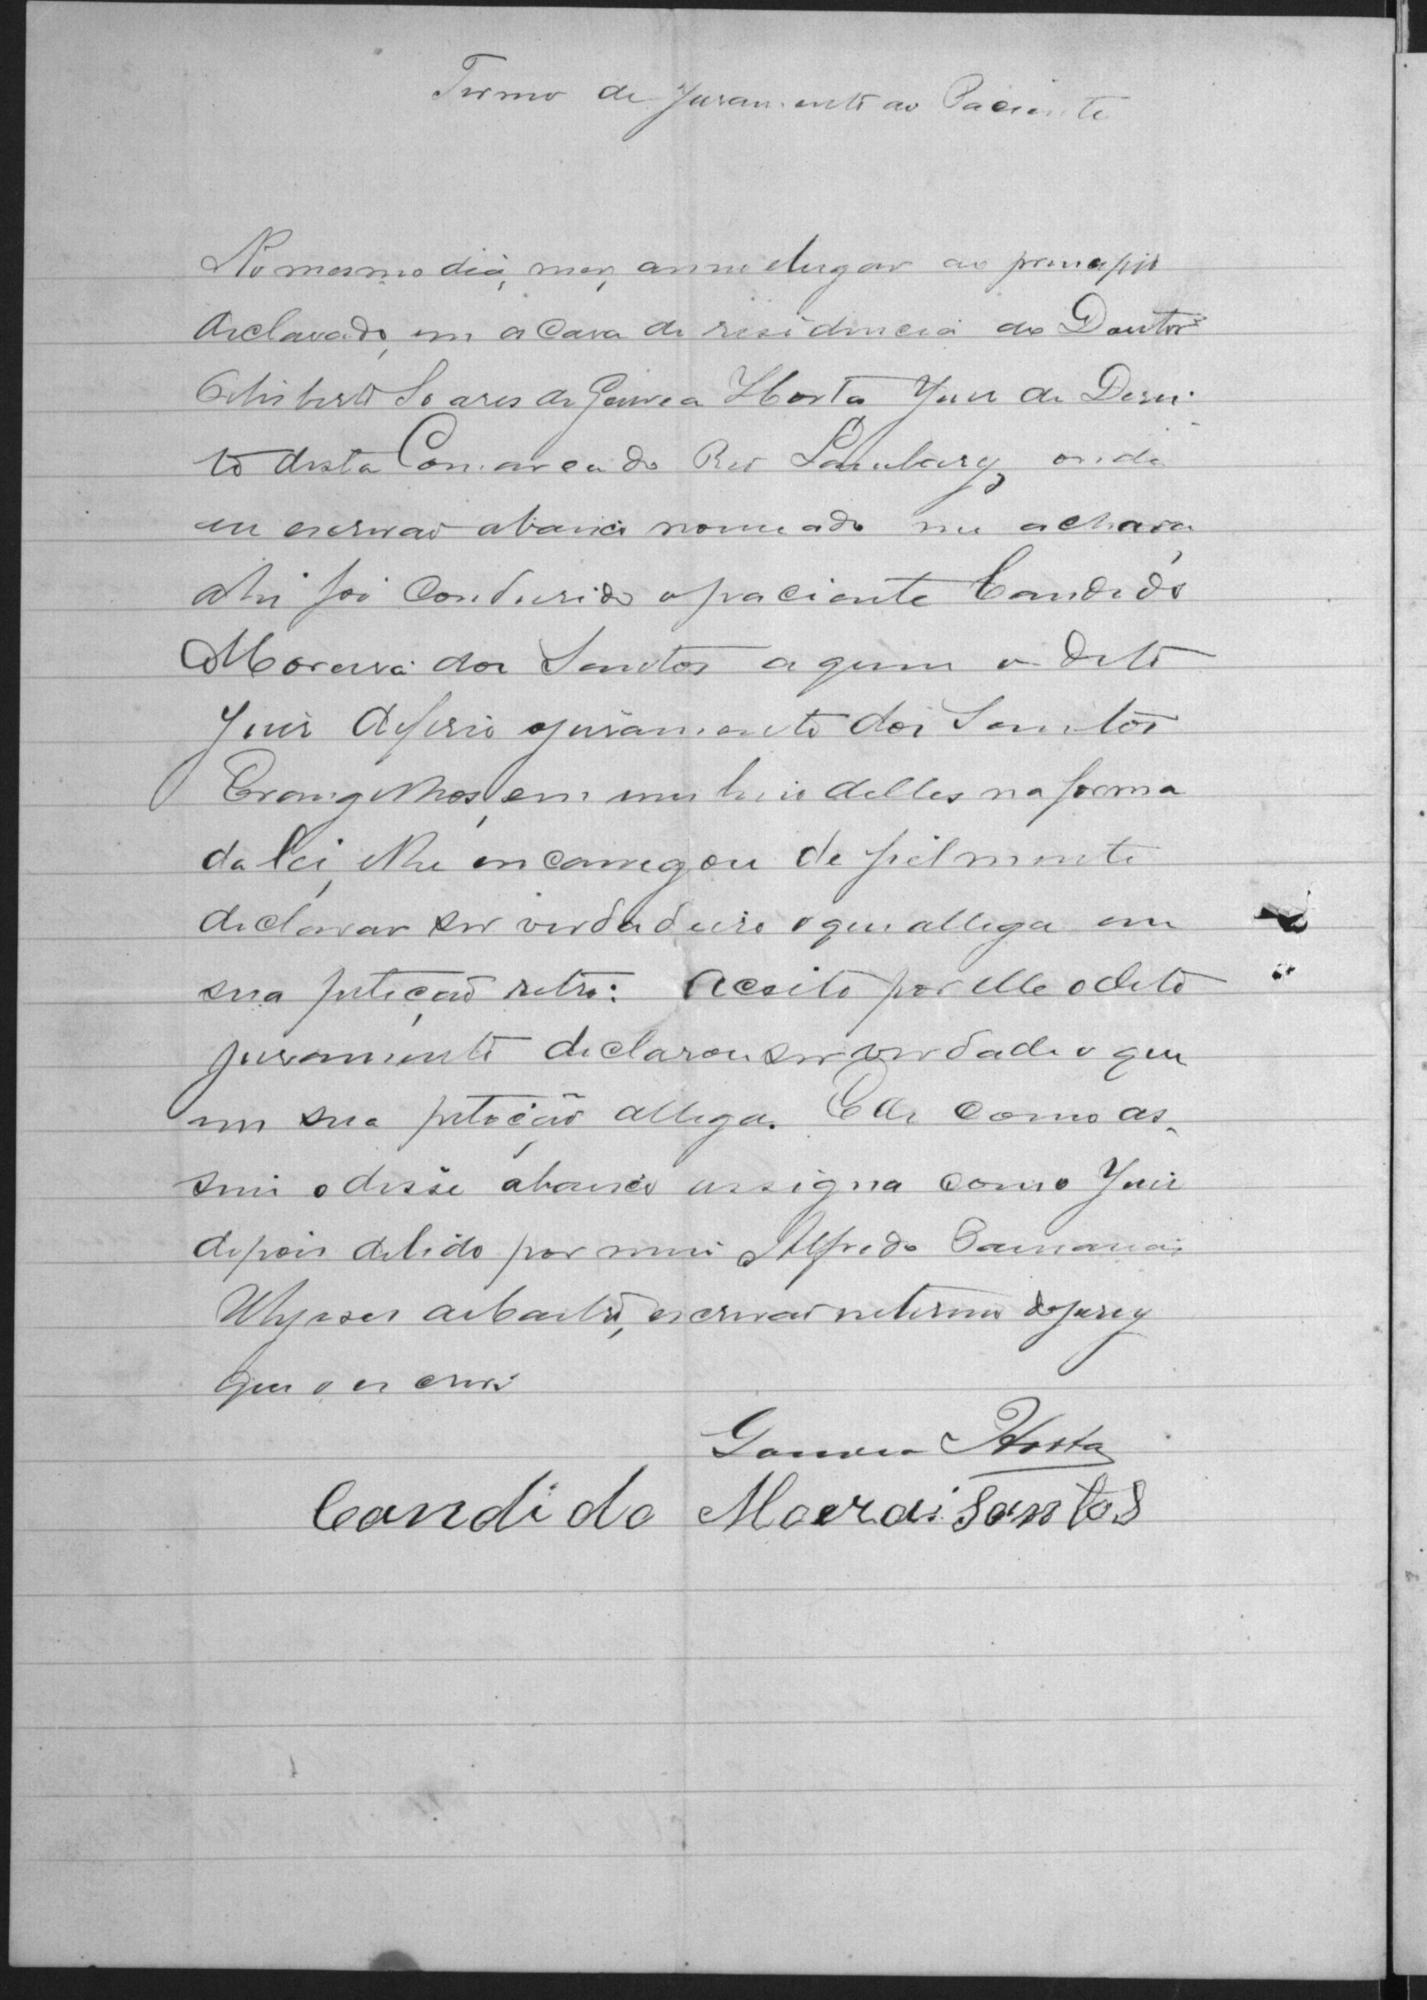 Termo de Juramento ao Paciente
No mesmo dia, mez, anno e lugar ao principio
declarado, em a casa de residencia do Doutor
Soares de Gouvea Horta Juiz de Direi-
to desta Comarca do Rio Lambary, onde
eu escrivao abaixo nomeado me achava
ahi foi condusido o paciente Candido
Moreira dos Santos a quem o dito
Juiz deferio o juramento dos Santos
Evangelhos, em um livro delles na forma
da lei, e lhe encarregou de fielmente
declarar ser verdadeiro o que allega em
sua petição retro: Aceito por elle o dito
juramento declarou ser verdade o que
em sua petição allega. E de como as-
sim o disse abaixo assigna como Juiz
depois de lido por mim Alfredo
Ulysses de Castro, escrivao interino do jury
que o escrevi
Gouvea Horta
Candido Moerai Santos